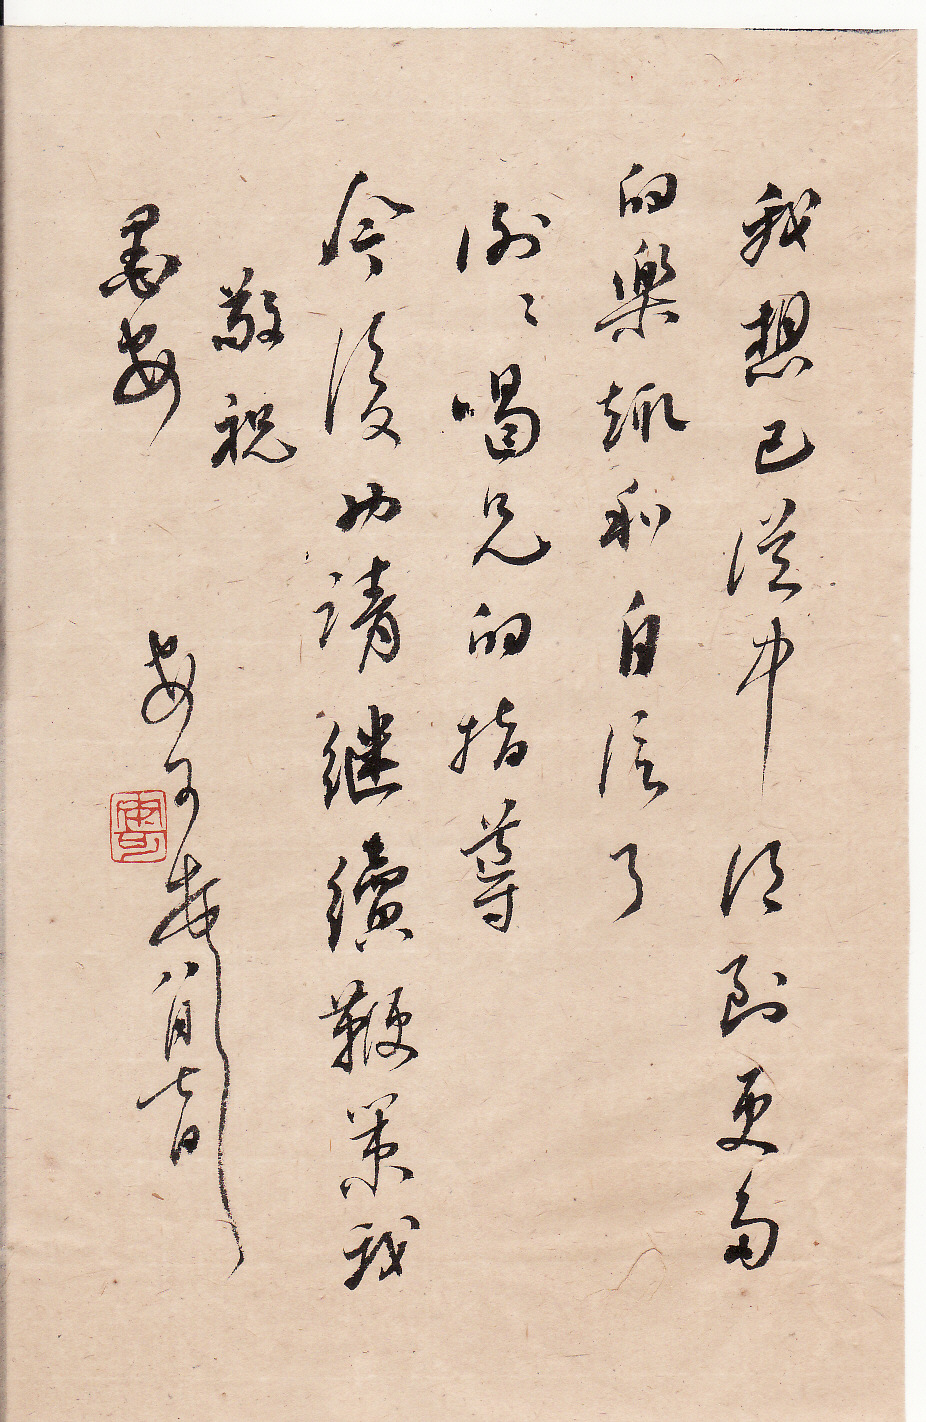 我想已從中得到更多
的樂趣和自信了
谢〻喝兄的指導
今後也請继續鞭策我
敬祝
墨安
八月七日